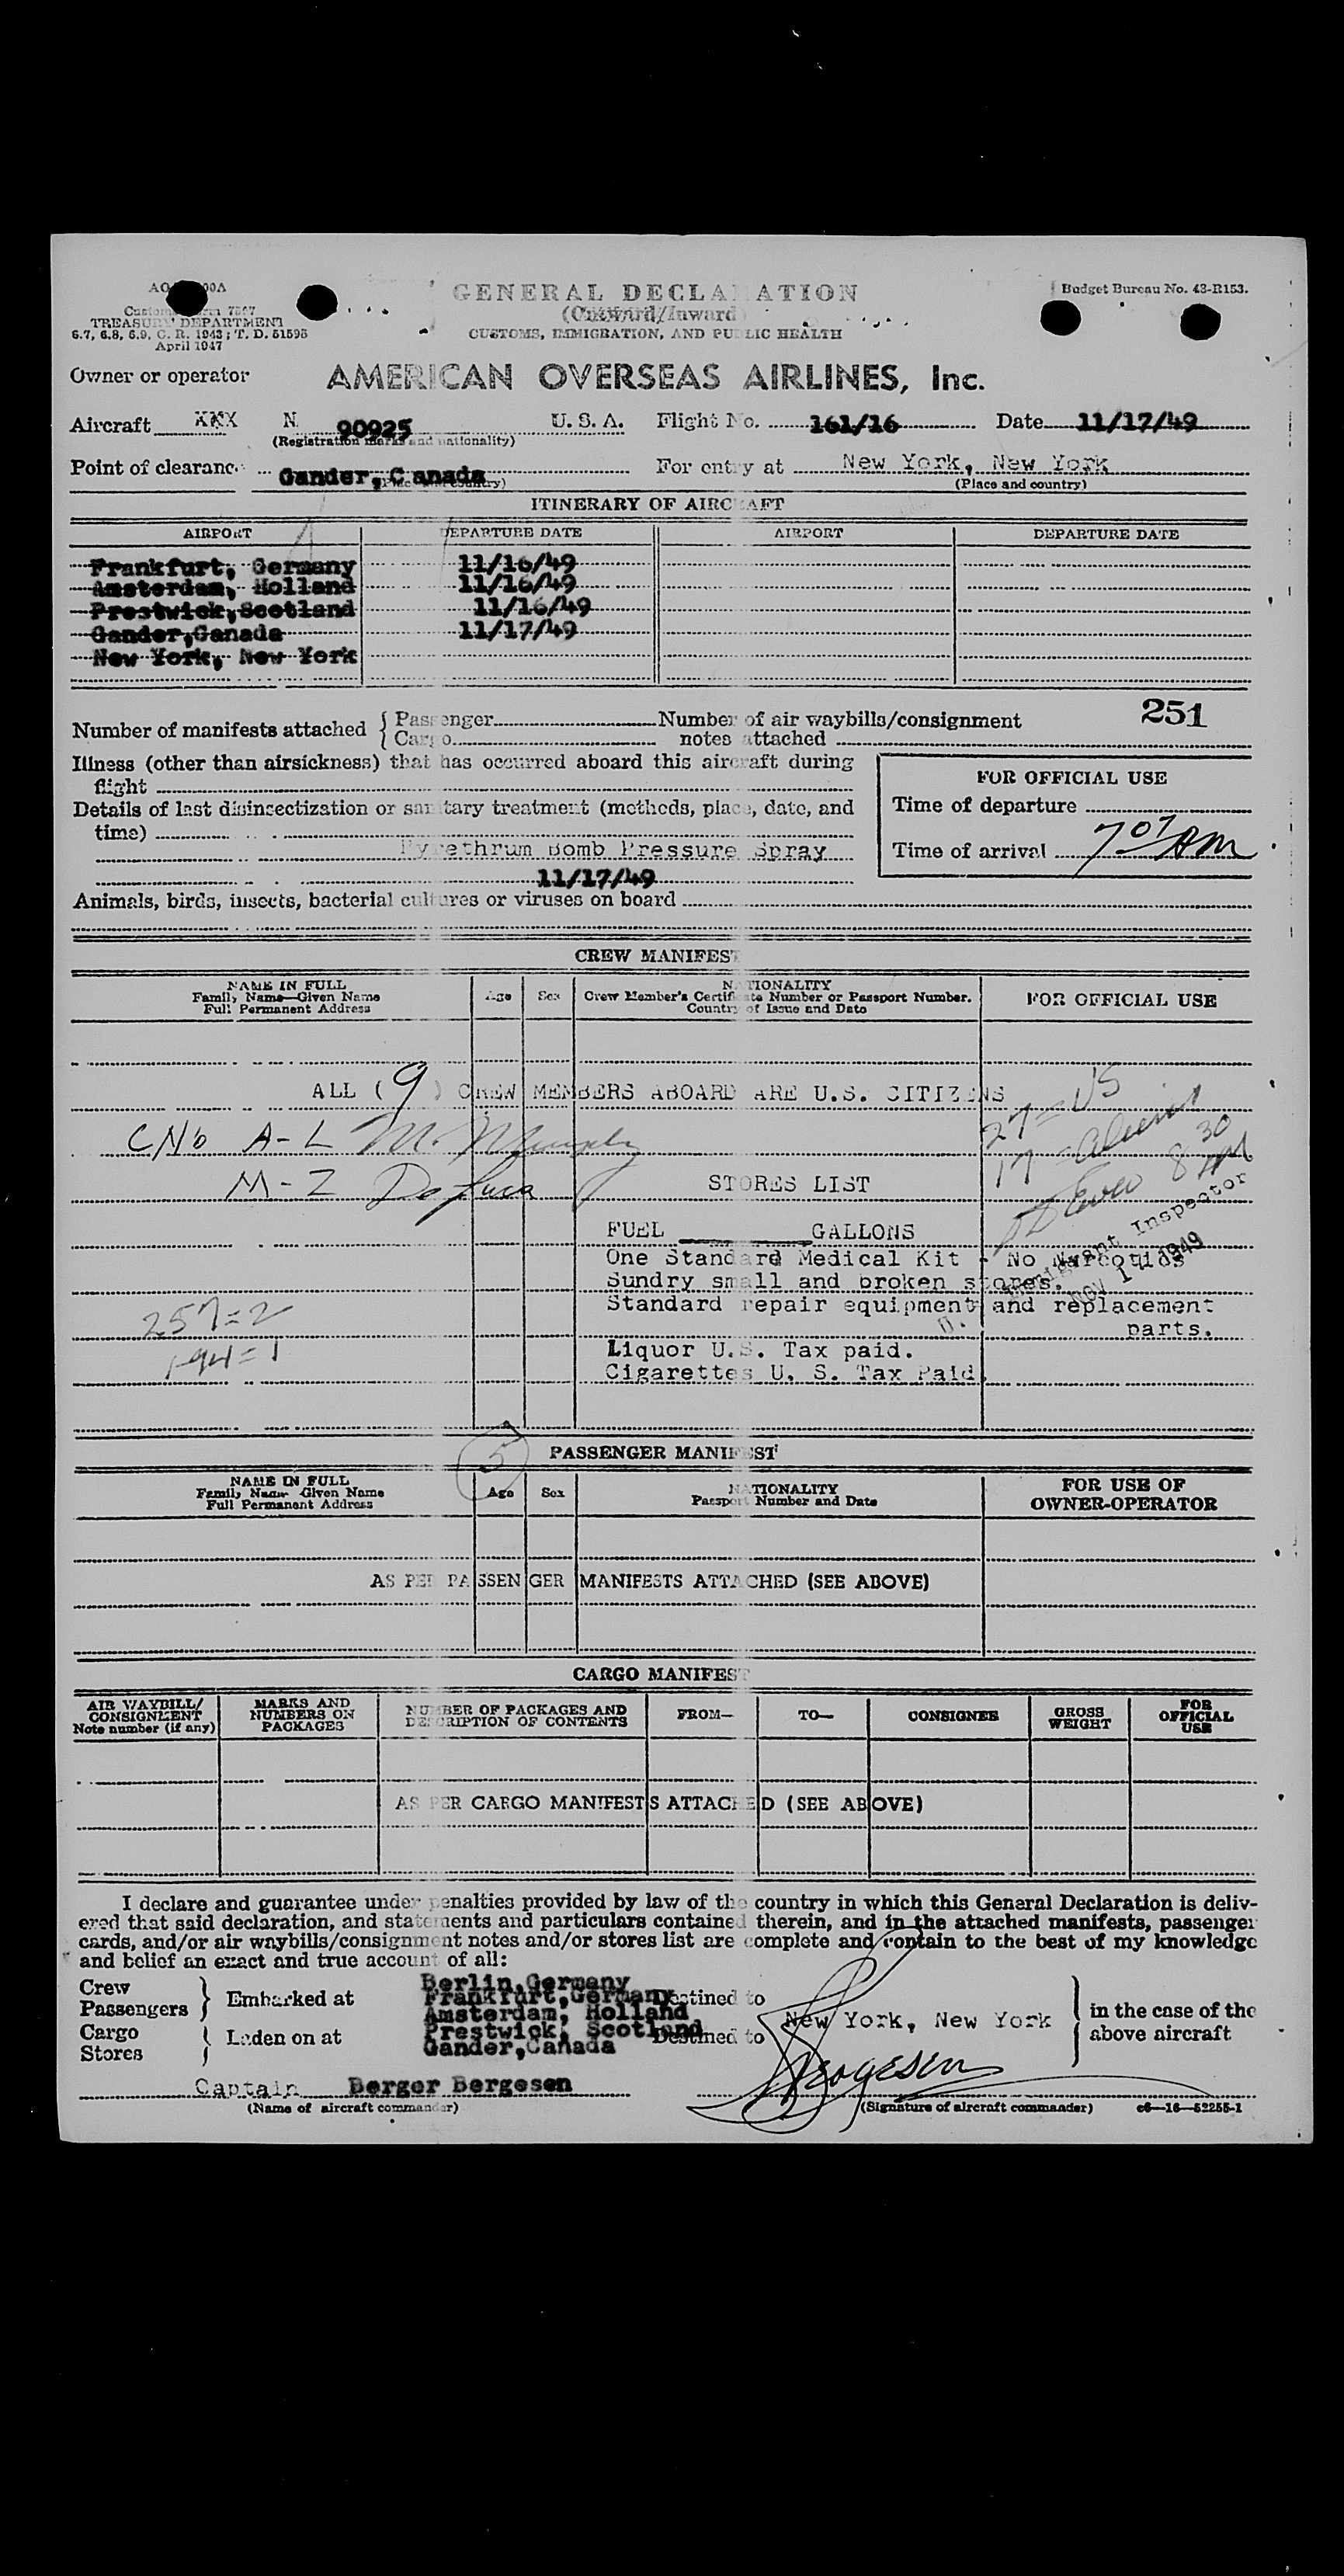 GENERAL DECLARATION
(Outward/Inward)
CUSTOMS, IMMIGRATION, AND PUBLIC HEALTH
Budget Bureau No. 43-R153.
TREASURY DEPARTMENT
6.7, 6.8, 6.9, C. R. 1943; T. D. 51595
April 1947
Owner or operator AMERICAN OVERSEAS AIRLINES, Inc.
Aircraft XXX N 90925 U. S. A. Flight No. 161/16 Date 11/17/49
(Registration marks and nationality)
Point of clearance Gander, C anada For entry at New York, New York
(Place and country) (Place and country)
ITINERARY OF AIRCRAFT
AIRPORT DEPARTURE DATE AIRPORT DEPARTURE DATE
Frankfurt, Germany 11/16/49
Amsterdam, Holland 11/16/49
Prestwick,Scotland 11/16/49
Gander,Canada 11/17/49
New York, New York
251
Number of manifests attached { Passenger Number of air waybills/consignment
Cargo notes attached
Illness (other than airsickness) that has occurred aboard this aircraft during
flight
Details of last disinsectization or sanitary treatment (methods, place, date, and
time)
Pyrethrum Bomb Pressure Spray
11/17/49
FOR OFFICIAL USE
Time of departure
Time of arrival 7 07 AM
Animals, birds, insects, bacterial cultures or viruses on board
CREW MANIFEST
NAME IN FULL
Family Name—Given Name
Full Permanent Address
Age Sex
NATIONALITY
Crew Member's Certificate Number or Passport Number.
Country of Issue and Date
FOR OFFICIAL USE
ALL (9) CREW MEMBERS ABOARD ARE U.S. CITIZENS
27 = US
A-L M. Murphy
17 = Aliens
M-Z DeLuca
8 30 AM
STORES LIST
Immigrant Inspector
NOV 17 1949
FUEL GALLONS
One Standard Medical Kit - No Narcotics
Sundry small and broken stores.
Standard repair equipment and replacement
parts.
Liquor U.S. Tax paid.
Cigarettes U. S. Tax Paid.
257=2
194=1
5
PASSENGER MANIFEST
NAME IN FULL
Family Name Given Name
Full Permanent Address
Age Sex
NATIONALITY
Passport Number and Date
FOR USE OF
OWNER-OPERATOR
AS PER PASSENGER MANIFESTS ATTACHED (SEE ABOVE)
CARGO MANIFEST
AIR WAYBILL/
CONSIGNMENT
Note number (if any)
MARKS AND
NUMBERS ON
PACKAGES
NUMBER OF PACKAGES AND
DESCRIPTION OF CONTENTS
FROM—
TO—
CONSIGNEE
GROSS
WEIGHT
FOR
OFFICIAL
USE
AS PER CARGO MANIFESTS ATTACHED (SEE ABOVE)
I declare and guarantee under penalties provided by law of the country in which this General Declaration is deliv-
ered that said declaration, and statements and particulars contained therein, and in the attached manifests, passenger
cards, and/or air waybills/consignment notes and/or stores list are complete and contain to the best of my knowledge
and belief an exact and true account of all:
Crew
Passengers } Embarked at
Cargo
Stores } Laden on at
Berlin,Germany
Frankfurt,Germany
Amsterdam, Holland
Prestwick, Scotland
Gander,Canada
Destined to
Destined to
New York, New York
in the case of the
above aircraft
Captain Berger Bergesen
Bergesen
(Name of aircraft commander) (Signature of aircraft commander) c6—16—52255-1